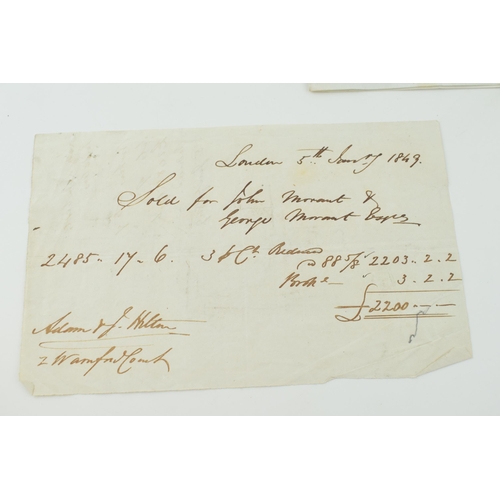 London 5th Jany 1849.
Sold for John Morant &
George Morant Esqrs
2485 - 17 - 6. 3 p Ct. Reduced
@ 88 5/8 2203 . 2 . 2
Brok e 3 . 2 . 2
£2200 - -
Adam & J. Hilton
2 Warnford Court